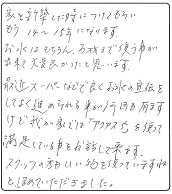 家を新築した時につけてもらい
もう14〜15年になります。
お水はもちろん、お花まで使う事が
出来て大変良かったと思います。
最近スーパーなどで良くお水の宣伝を
してよく進められる事が何回も有ります
けど我が家では「アクアス」を使って
満足している事をお話して来ます。
スタッフの方もいい物を使っていますね
と ほめていただきました。